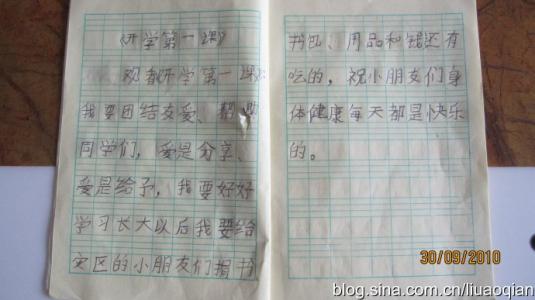 《开学第一课》
观看《开学第一课》
我要团结友爱、帮
同学们，爱是分享、
爱是给予，我要好好
学习长大以后我要给
灾区的小朋友们捐书
书包、用品和钱还有
吃的，祝小朋友们身
体健康每天都是快乐
的。
30/09/2010
blog.sina.com.cn/liuaoqian